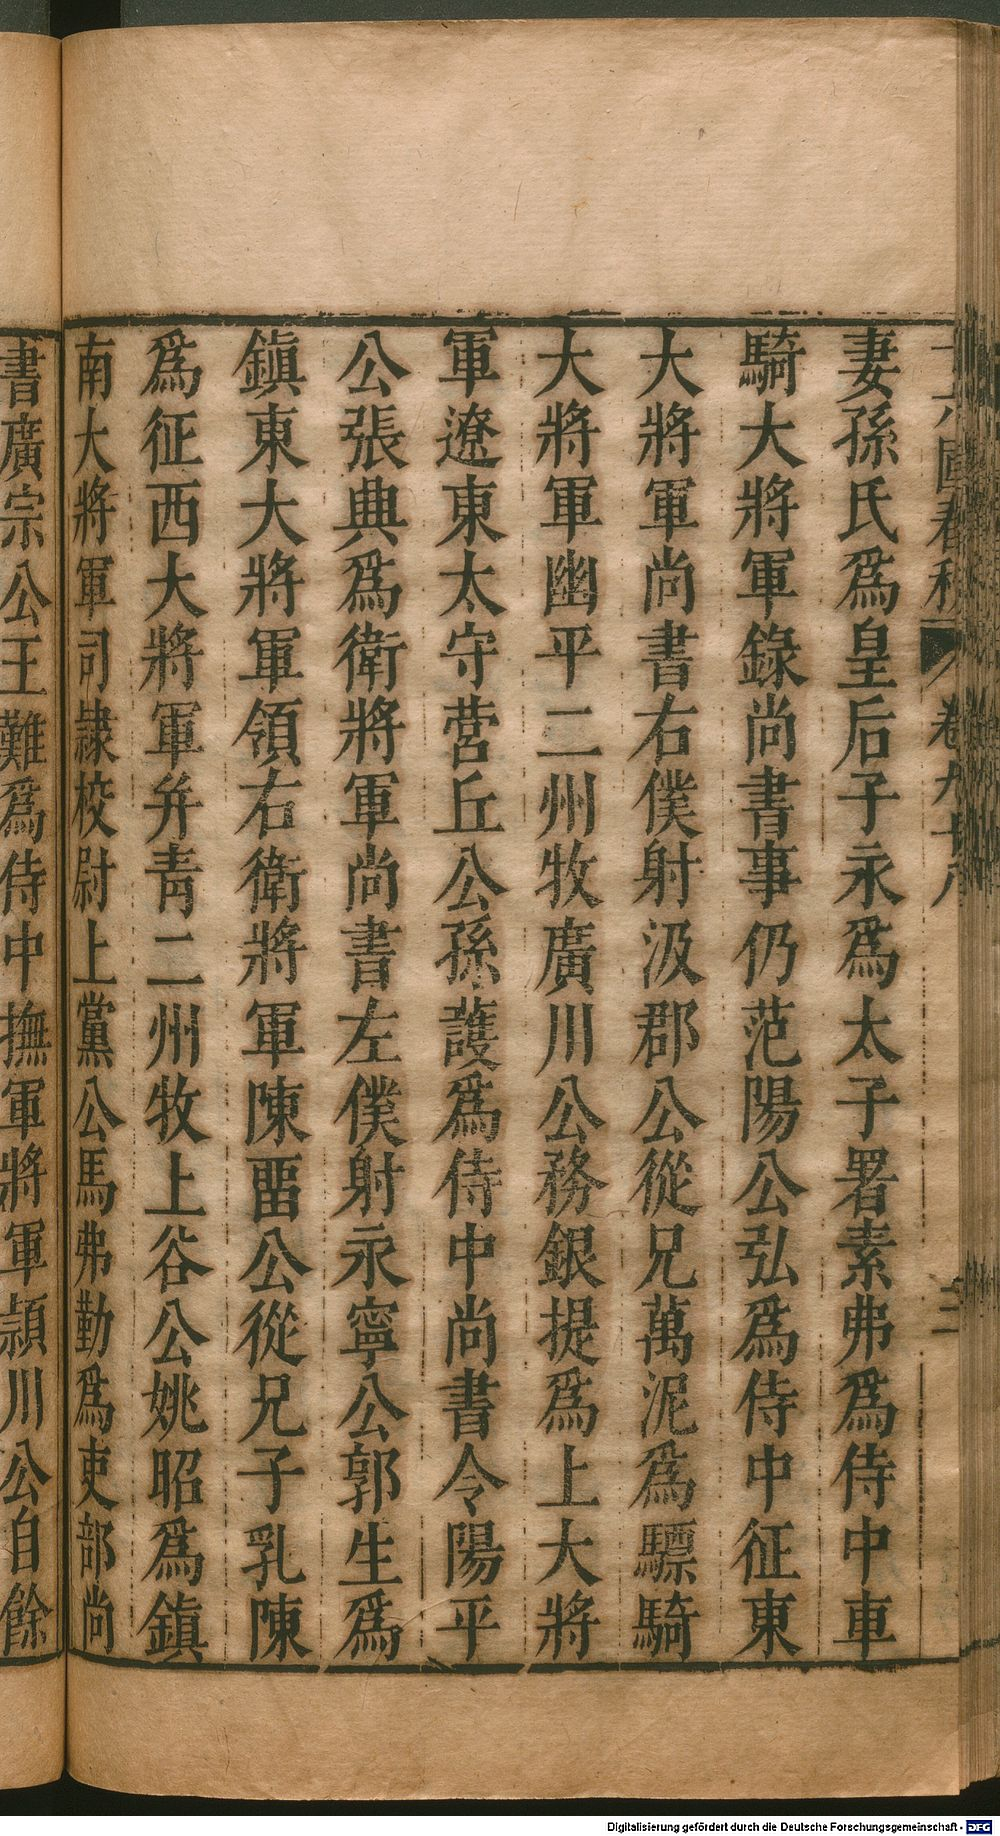 妻孫氏爲皇后子永爲太子署素弗爲侍中車
騎大將軍錄尚書事仍范陽公弘爲侍中征東
大將軍尚書右僕射汲郡公從兄萬泥爲驃騎
大將軍幽平二州牧廣川公務銀提爲上大將
軍遼東太守營丘公孫護爲侍中尚書令陽平
公張典爲衛將軍尚書左僕射永寧公郭生爲
鎮東大將軍領右衛將軍陳畱公從兄子乳陳
爲征西大將軍幷靑二州牧上谷公姚昭爲鎮
南大將軍司隷校尉上黨公馬弗勤爲吏部尚
書廣宗公王難爲侍中撫軍將軍潁川公自餘
Digitalisierung gefördert durch die Deutsche Forschungsgemeinschaft - DFG